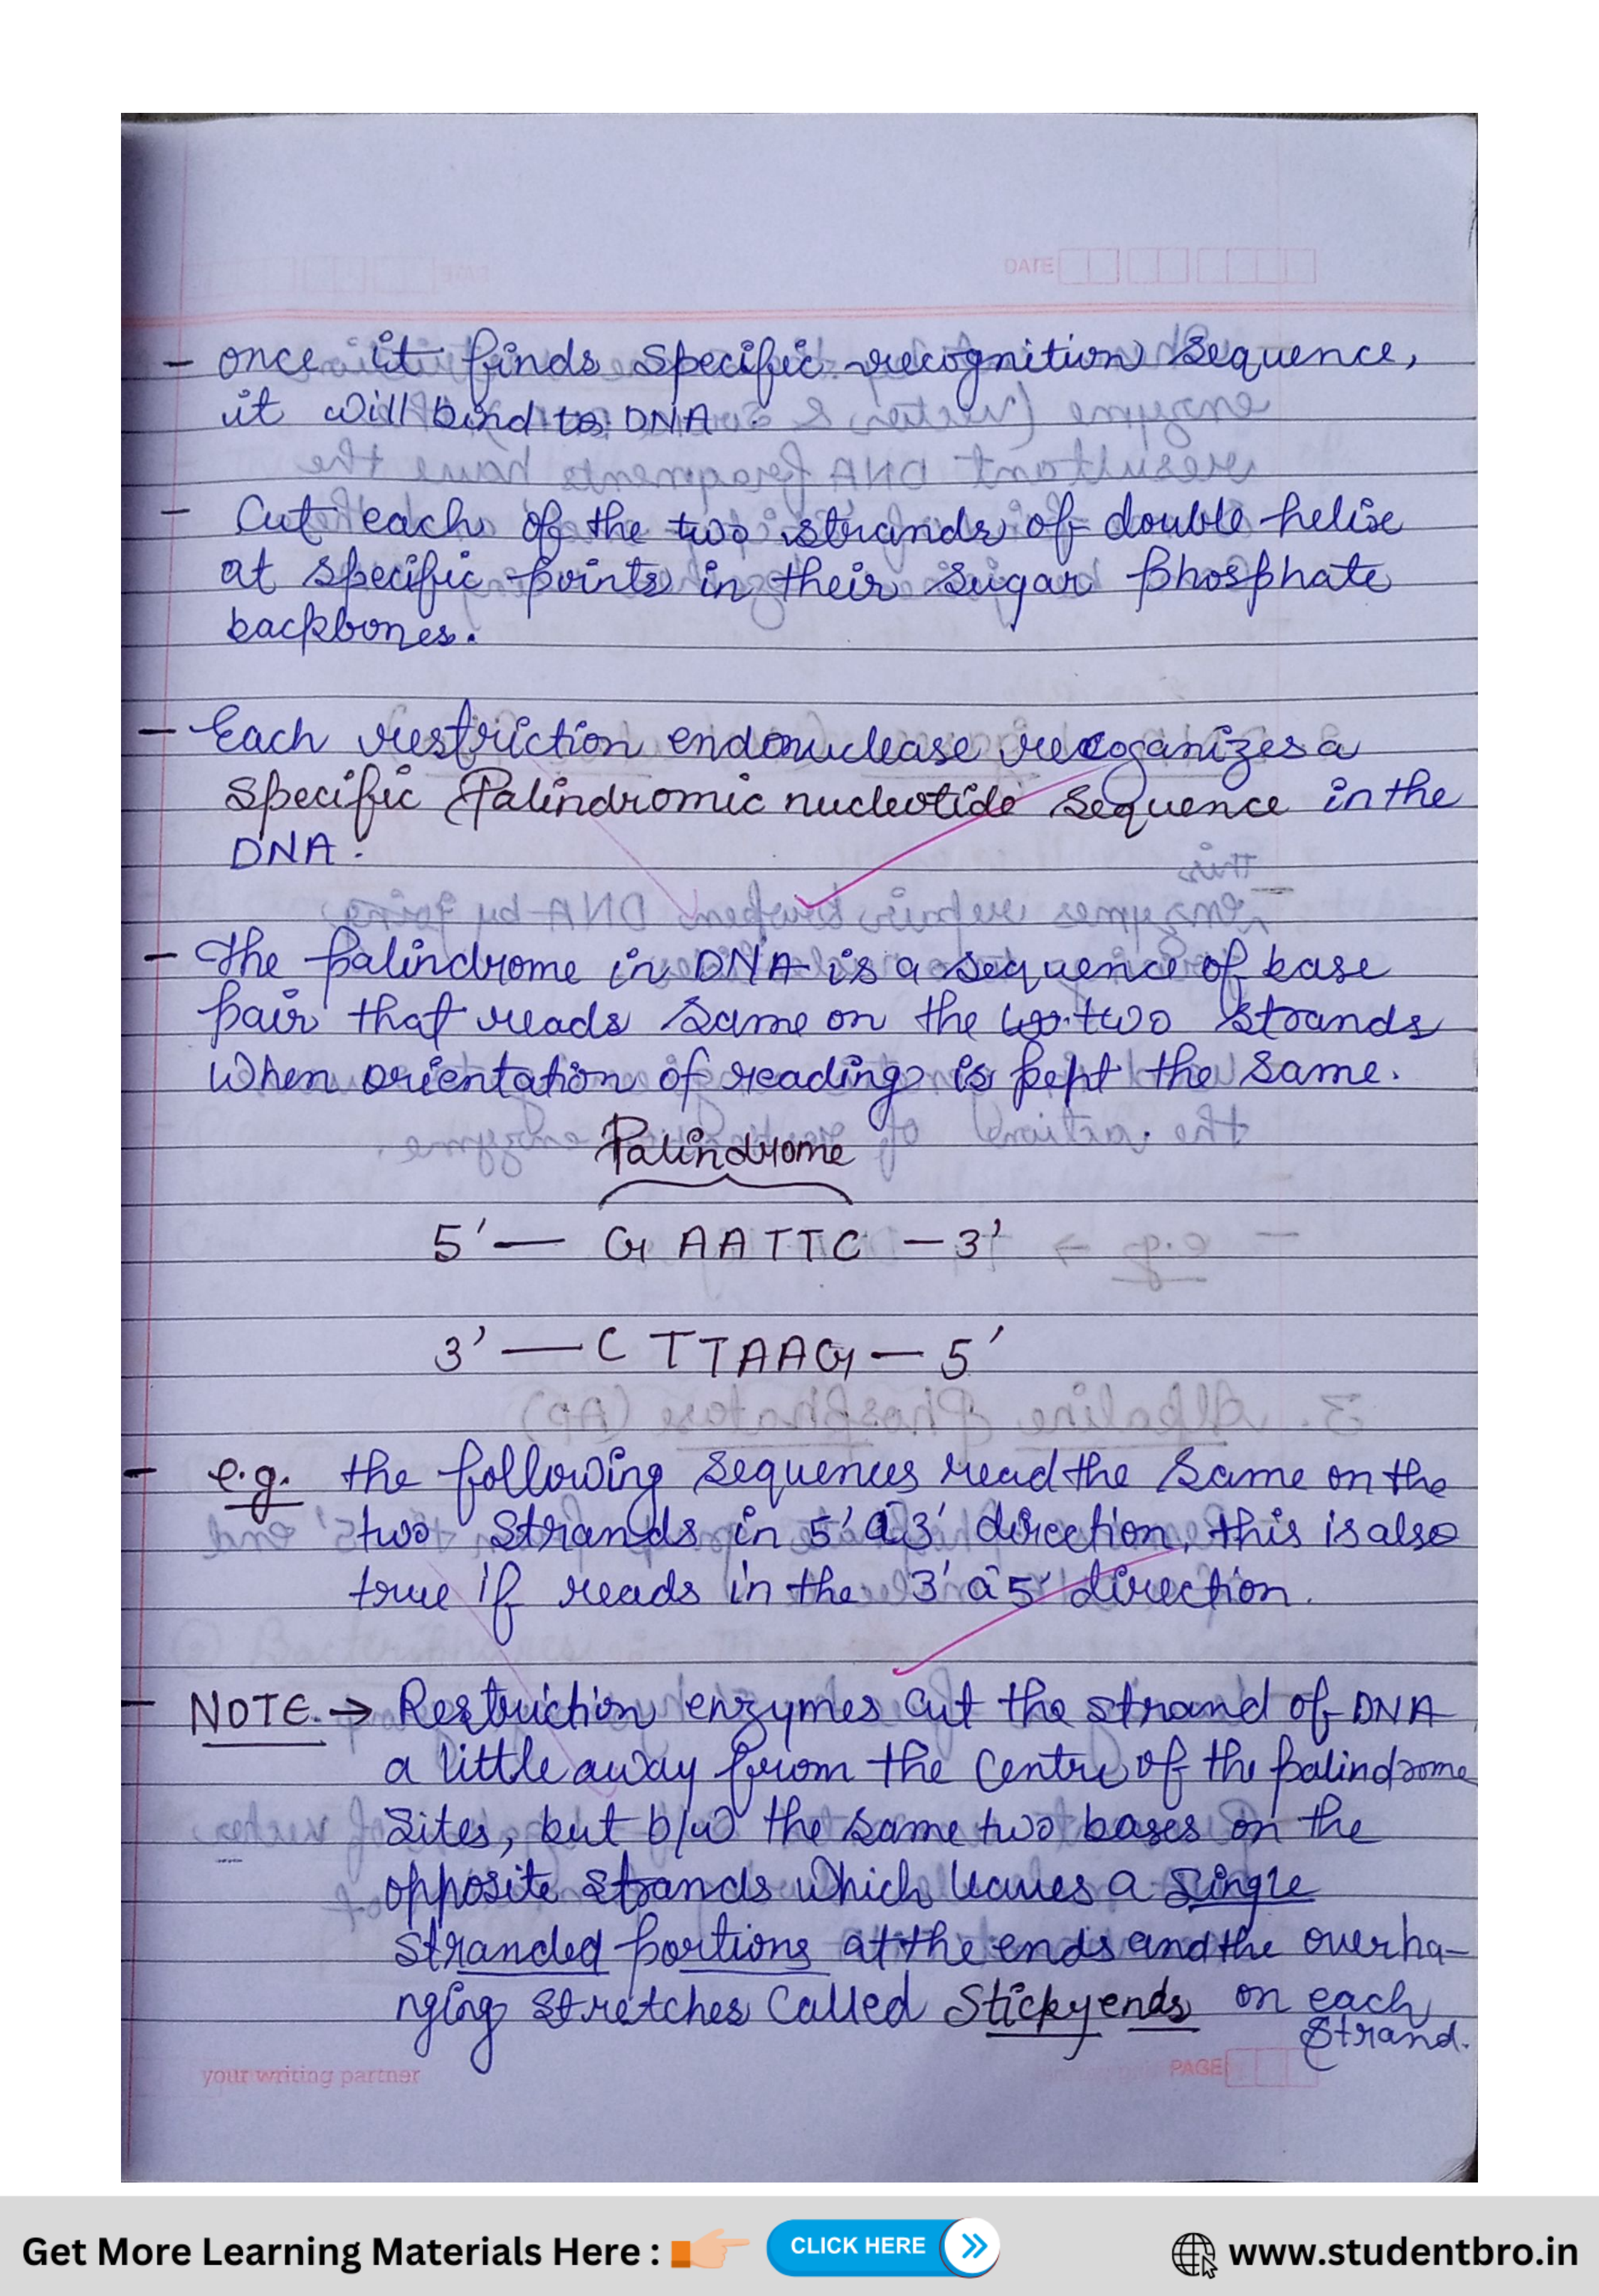 DATE
- once it finds specific recognition sequence,
it will bind to DNA.
- Cut each of the two strands of double helix
at specific points in their sugar phosphate
backbones.
- Each restriction endonuclease recoganizes a
specific Palindromic nucleotide sequence in the
DNA.
- The palindrome in DNA is a sequence of base
pair that reads same on the two strands
when orientation of reading is kept the same.
Palindrome
5' — G AATTC — 3'
3' — C TTAAG — 5'
- e.g. the following sequences read the same on the
two strands in 5' à 3' direction, this is also
true if reads in the 3' à 5' direction.
- NOTE. → Restriction enzymes cut the strand of DNA
a little away from the centre of the palindrome
sites, but b/w the same two bases on the
opposite strands which leaves a single
stranded portions at the ends and the overha-
nging stretches called Sticky ends on each
strand.
your writing partner
PAGE
Get More Learning Materials Here :
CLICK HERE
www.studentbro.in